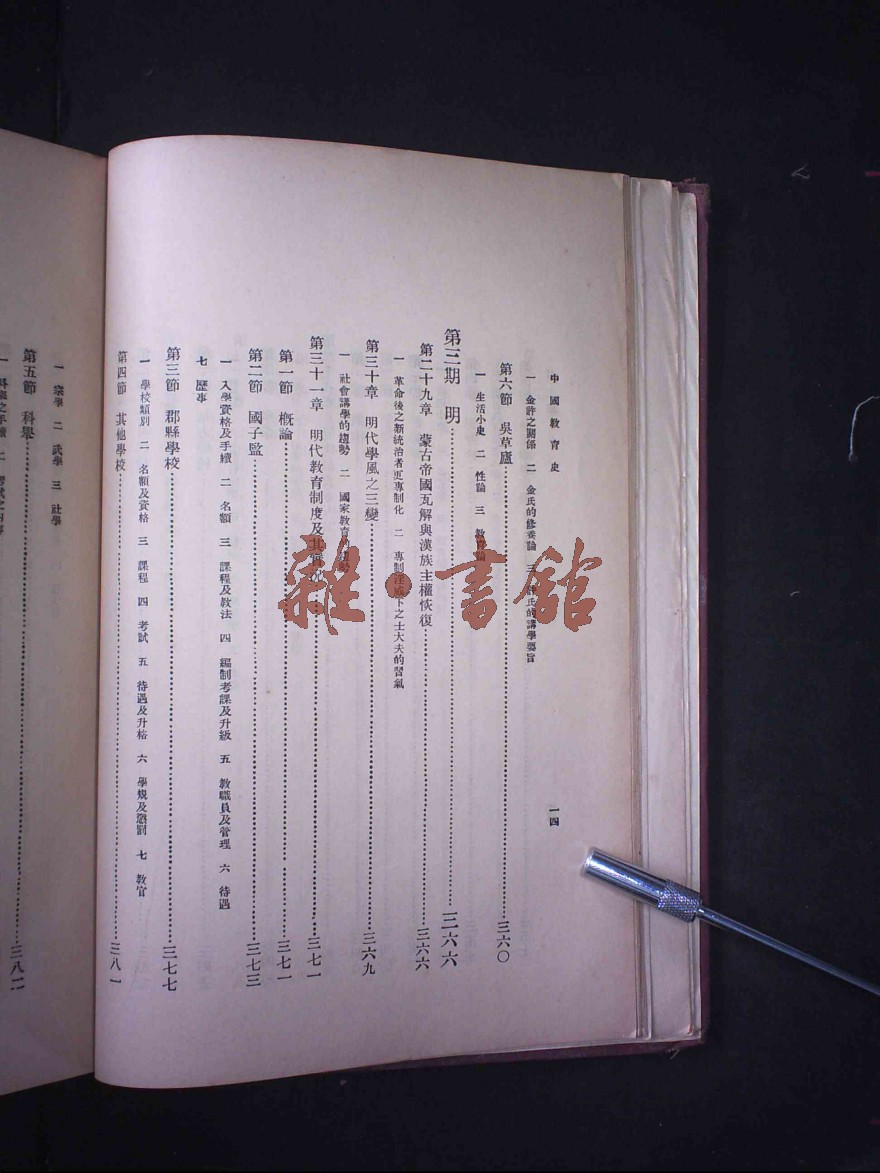 中國教育史
一四
一 金許之關係 二 金氏的修養論 三 許氏的講學要旨
第六節 吳草廬三六〇
一 生活小史 二 性論 三 教育論
第三期 明三六六
第二十九章 蒙古帝國瓦解與漢族主權恢復三六六
一 革命後之新統治者更專制化 二 專制淫威下之士大夫的習氣
第三十章 明代學風之三變三六九
一 社會講學的趨勢 二 國家教育 勢
第三十一章 明代教育制度及其實況三七一
第一節 概論三七一
第二節 國子監三七三
一 入學資格及手續 二 名額 三 課程及教法 四 編制考課及升級 五 教職員及管理 六 待遇
七 歷事
第三節 郡縣學校三七七
一 學校類別 二 名額及資格 三 課程 四 考試 五 待遇及升格 六 學規及懲罰 七 教官
第四節 其他學校三八一
一 宗學 二 武學 三 社學
第五節 科舉三八二
雜·書館